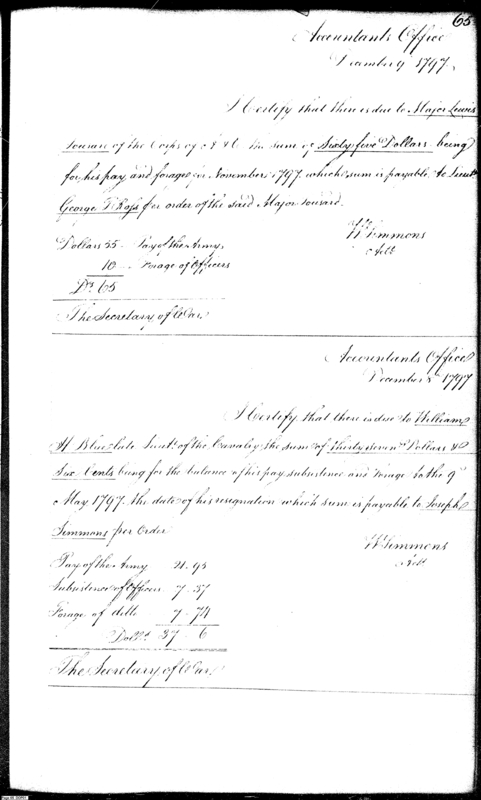 65
Accountants Office
December 9 1797.
I Certify that there is due to Major Lewis
Tousard of the Corps of A & E the sum of Sixty five Dollars being
for his pay and forage for November 1797. which sum is payable to Lieut
George Ross per order of the said Major Tousard.
Wm Simmons
Actt
Dollars 55 - Pay of the Army,
10 - Forage of Officers
Drs 65
The Secretary of War
Accountants Office
December 8 1797
I Certify, that there is due to William
A Blue late Lieut. of the Cavalry the sum of thirty seven Dollars &
Six Cents being for the balance of his pay subsistence and forage to the 9th
May 1797. the date of his resignation which sum is payable to Joseph
Simmons per Order
Wm Simmons
Actt
Pay of the Army 21. 95
Subsistence of Officers 7. 37
Forage of ditto 7. 74
Dolls. 37. 6
The Secretary of War